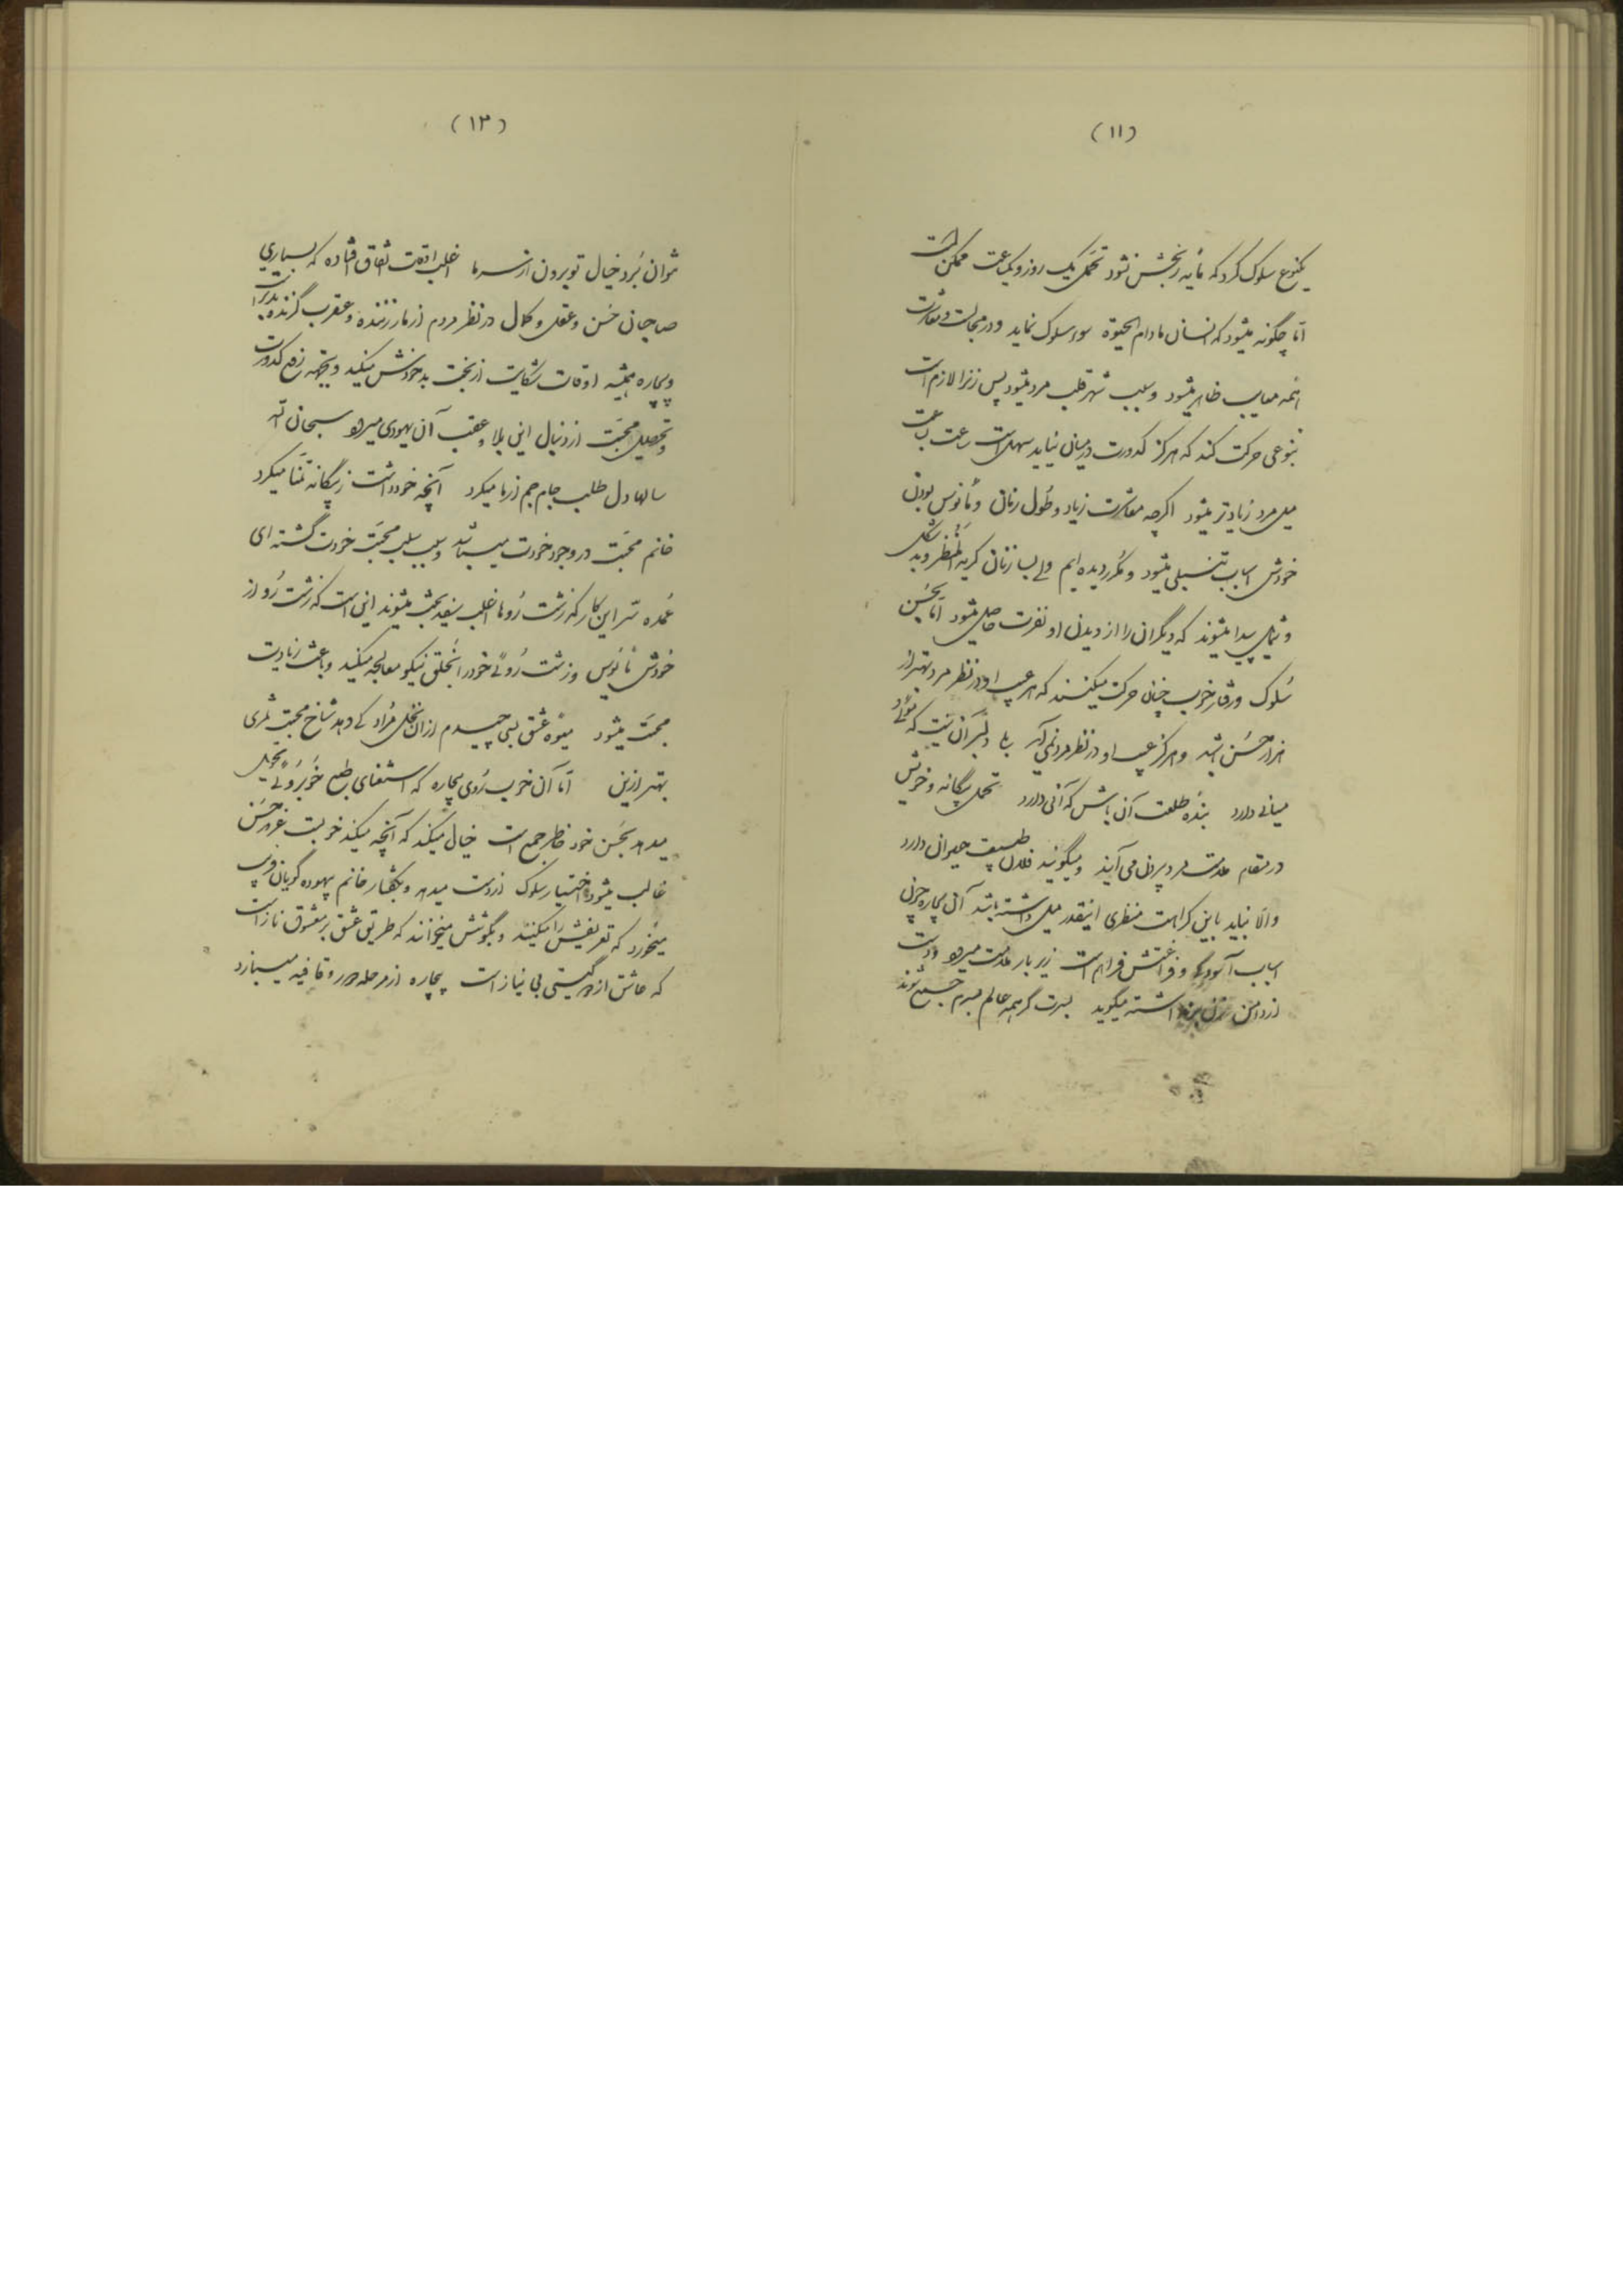 (۱۱)
یکنوع سلوک کرد که مایه رنجش نشود تحمل یک روز و یکساعت ممکن است
اما چگونه میشود که انسان مادام الحیوة سوء سلوک نماید و در مجالست و معاشرت
اینهمه معایب ظاهر میشود و سبب قلب مرد میشود پس زنرا لازم است
بنوعی حرکت کند که هرگز کدورت در میان نیاید سهل است ساعت بساعت
میل مرد زیادتر میشود اگرچه معاشرت زیاد و طول زمان و مأنوس بودن
خودش اسباب تسلی میشود و مکرر دیده ایم ولی بسا زنان کریه المنظر و بد شکل
و شمایل پیدا میشوند که دیگران را از دیدن او نفرت حاصل میشود اما بحسن
سلوک و رفتار خوب چنان حرکت میکنند که هر عیب او در نظر مرد بهتر از
هزار حسن باشد و هرگز عیب او در نظر مرد نمی آید بلی دلبر آن نیست که موئی و
میانی دارد بنده طلعت آن باش که آنی دارد تحمل بیگانه و خویش
در مقام ملامت مرد بیرون می آیند و میگویند فلان حیوانی دارد
والا نباید باین کراهت منظری اینقدر میل داشته باشد آن بیچاره چون
اسباب آسودگی و فراغتش فراهم است زیر بار ملامت میرود و دست
از دامن زن برنداشته میگوید بسرت گر همه عالم بسرم جمع شوند
(۱۳)
نتوان برد خیال تو برون از سر ما اغلب اوقات اتفاق افتاده که بسیاری
صاحبان حسن و عقل و کمال در نظر مردم از مار زننده و عقرب گزنده بدتر است
و بیچاره همیشه اوقات شکایت از بخت بد خودش میکند و بجهة رفع کدورت
و تحصیل محبت از دنبال این بلا و عقب آن یهودی میرود سبحان الله
سالها دل طلب جام جم از ما میکرد آنچه خود داشت ز بیگانه تمنا میکرد
خانم محبت در وجود خودت میباشد و سبب سلب محبت خودت گشته ای
عمده سر این کار که زشت روها اغلب سفید بخت میشوند این است که زشت رو از
خودش مأیوس و زشت روئی خود را بخلق نیکو معالجه میکند و باعث زیادیت
محبت میشود میوه عشق بسی چیدم از آن نخل مراد کی دهد شاخ محبت ثمری
بهتر ازین اما آن خوب روی بیچاره که استغنای طبع خوبروئی تحویل
میدهد بحسن خود خاطر جمع است خیال میکند که آنچه میکند خوبست غرور حسن
غالب میشود اختیار سلوک از دست میدهد و بگفتار خانم بیهوده گویان فریب
میخورد که تعریفش را میکنند و بگوشش میخوانند که طریق عشق بر معشوق ناز است
که عاشق از گیتی بی نیاز است بیچاره از مرحله دور و قافیه میبازد